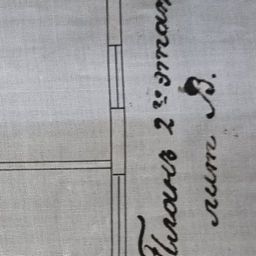 Планъ 2го этаж
лит В.